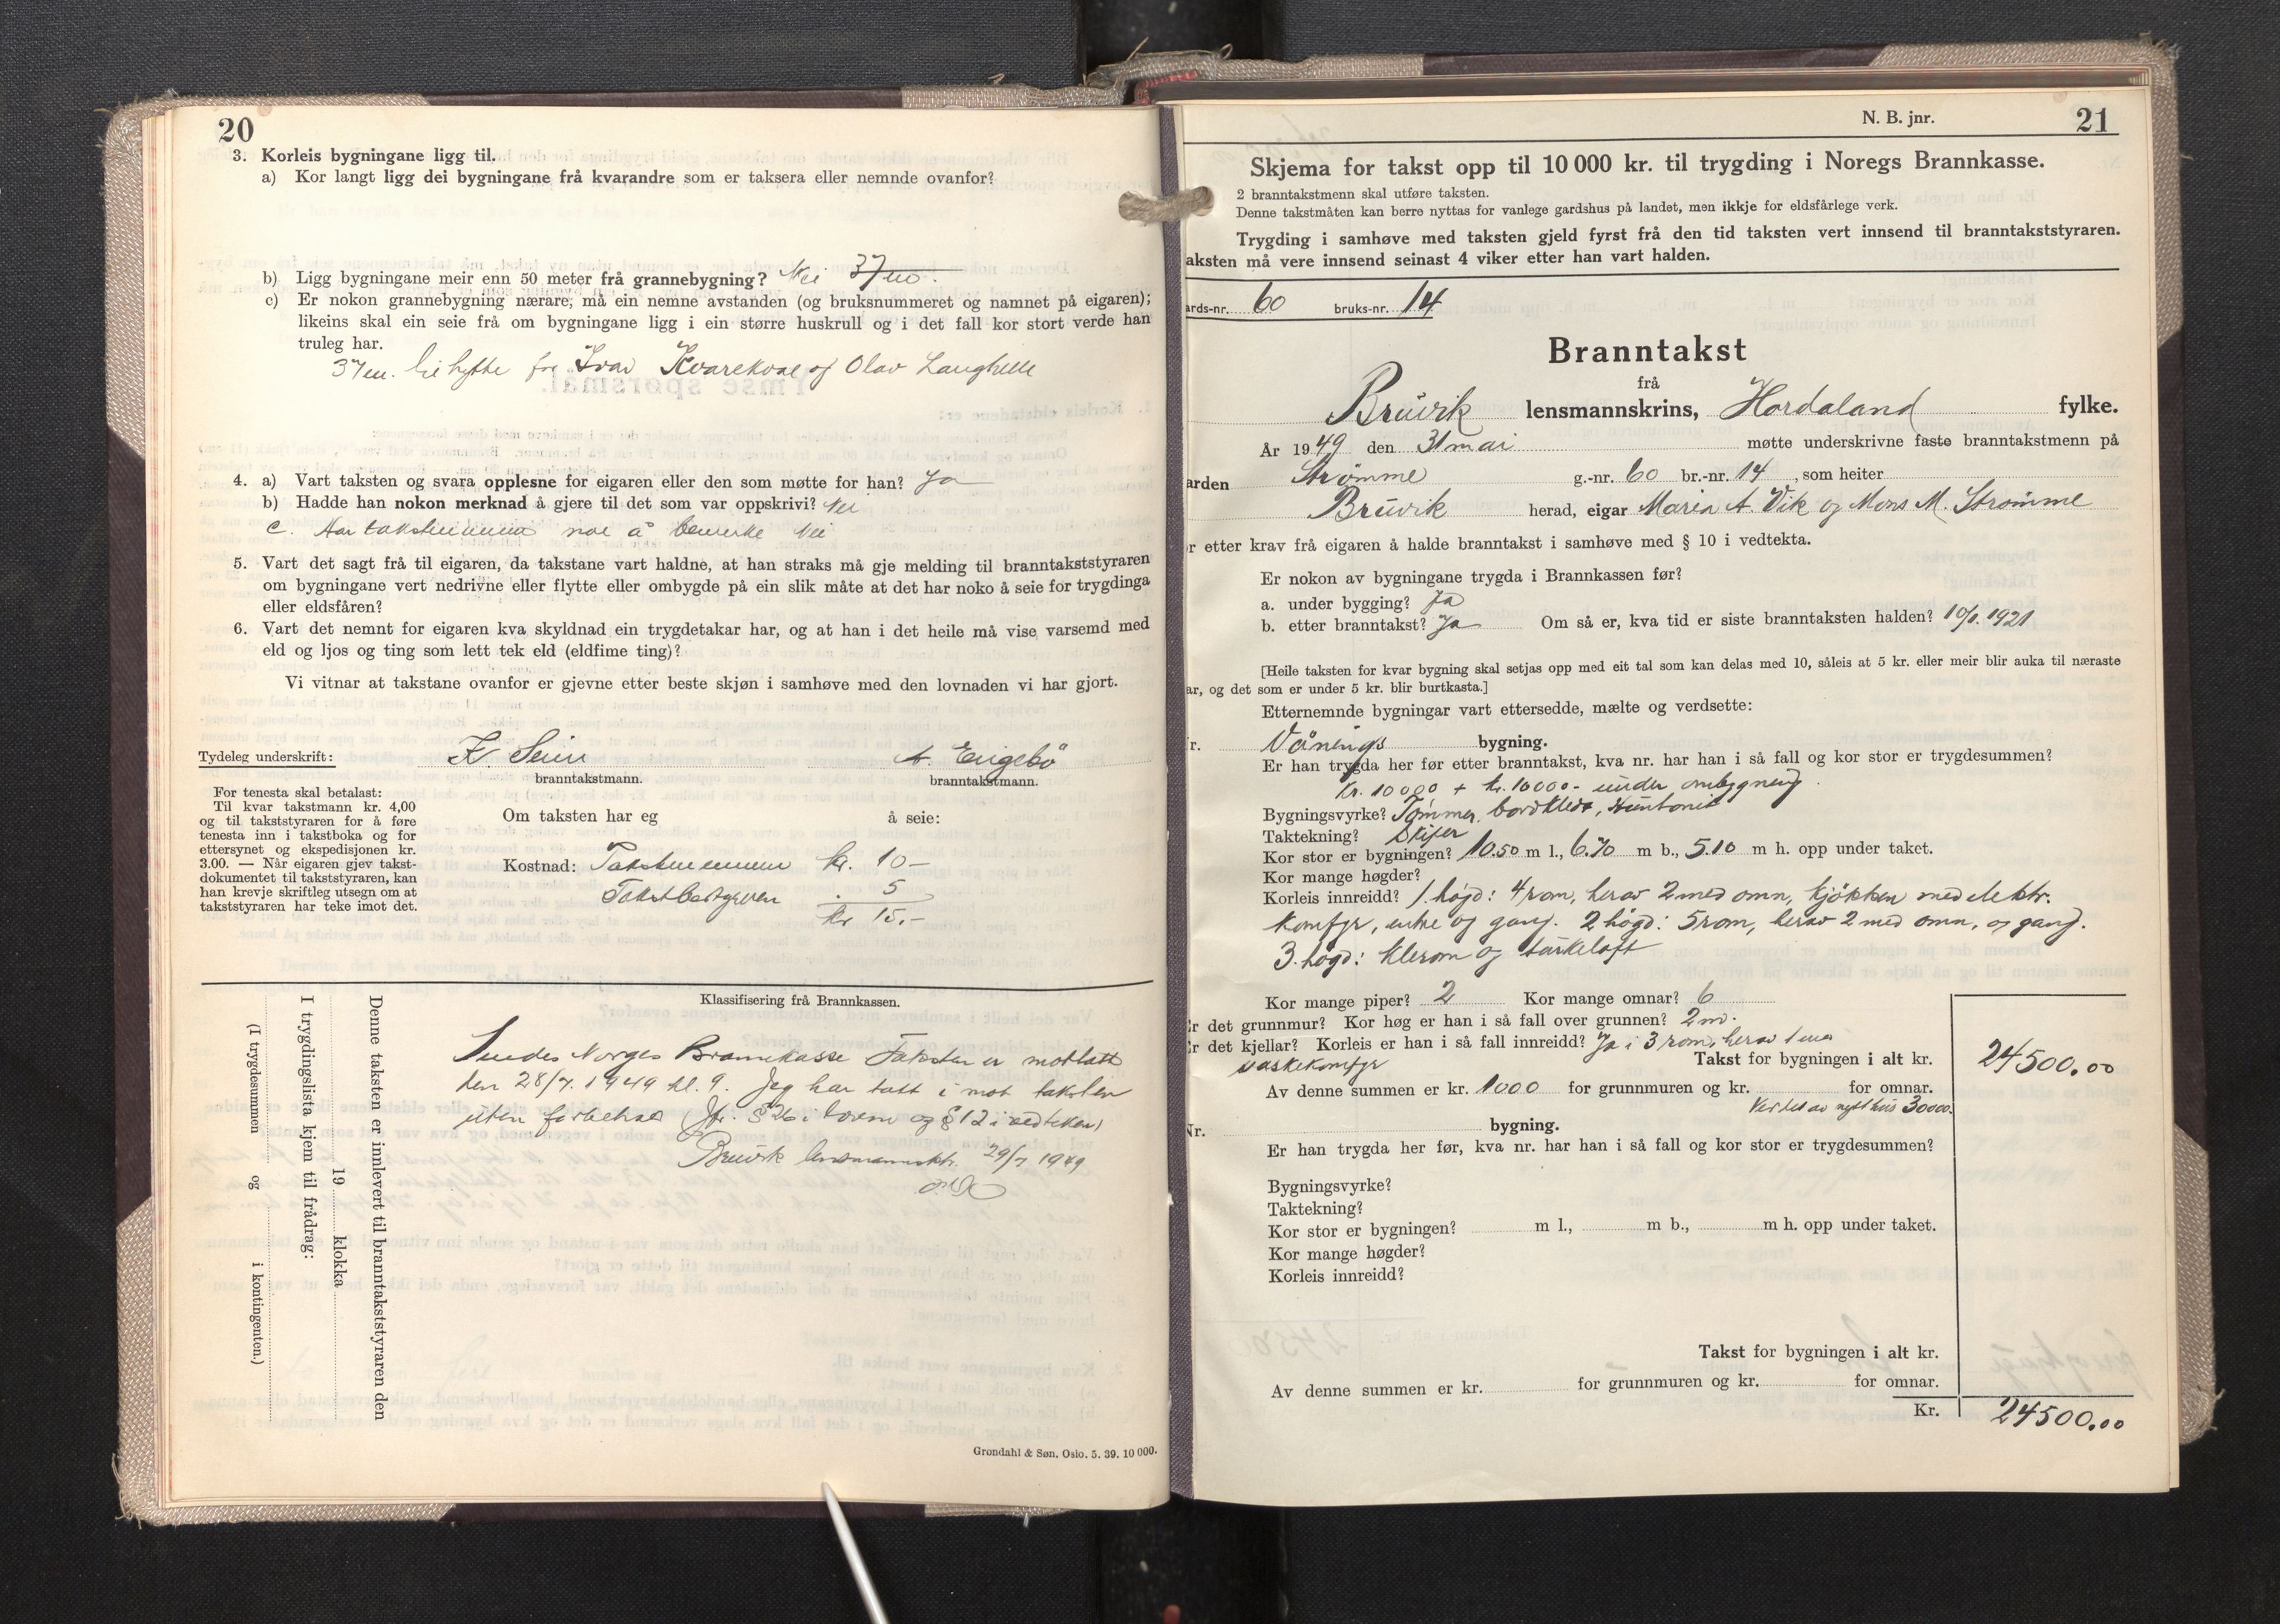 20
3. Korleis bygningane ligg til.
a) Kor langt ligg dei bygningane frå kvarandre som er taksera eller nemnde ovanfor?
b) Ligg bygningane meir enn 50 meter frå grannebygning? Nei 37 m.
c) Er nokon grannebygning nærare, må ein nemne avstanden (og bruksnummeret og namnet på eigaren);
likeins skal ein seie frå om bygningane ligg i ein større huskrull og i det fall kor stort verde han
truleg har.
37 m. til hytte for Ivar Kvarekval og Olav Langhelle
4. a) Vart taksten og svara opplesne for eigaren eller den som møtte for han? Ja
b) Hadde han nokon merknad å gjere til det som var oppskrivi? Nei
c. Har takstmennene noe å bemerke Nei
5. Vart det sagt frå til eigaren, da takstane vart haldne, at han straks må gje melding til branntakststyraren
om bygningane vert nedrivne eller flytte eller ombygde på ein slik måte at det har noko å seie for trygdinga
eller eldsfåren?
6. Vart det nemnt for eigaren kva skyldnad ein trygdetakar har, og at han i det heile må vise varsemd med
eld og ljos og ting som lett tek eld (eldfime ting)?
Vi vitnar at takstane ovanfor er gjevne etter beste skjøn i samhøve med den lovnaden vi har gjort.
Tydeleg underskrift: K Seim A. Engebö
branntakstmann. branntakstmann.
For tenesta skal betalast:
Til kvar takstmann kr. 4,00
og til takststyraren for å føre
tenesta inn i takstboka og for
ettersynet og ekspedisjonen kr.
3.00. — Når eigaren gjev takst-
dokumentet til takststyraren, kan
han krevje skriftleg utsegn om at
takststyraren har teke imot det.
Om taksten har eg å seie:
Kostnad: Takstmennene kr. 10-
Takstbestyreren . 5
kr 15.-
Klassifisering frå Brannkassen.
Sendes Norges Brannkasse Taksten er mottatt
den 28/7. 1949 kl. 9. Jeg har tatt i mot taksten
uten forbehold Jfr. § 26 i loven og § 12 i vedtekter
Bruvik lensmannsktr. 29/7 1949
Denne taksten er innlevert til branntakststyraren den
19 klokka
I trygdingslista kjem til frådrag:
(I trygdesummen og i kontingenten.)
Grøndahl & Søn. Oslo. 5. 39. 10 000.
N. B. jnr. 21
Skjema for takst opp til 10 000 kr. til trygding i Noregs Brannkasse.
2 branntakstmenn skal utføre taksten.
Denne takstmåten kan berre nyttas for vanlege gardshus på landet, men ikkje for eldsfårlege verk.
Trygding i samhøve med taksten gjeld fyrst frå den tid taksten vert innsend til branntakststyraren.
aksten må vere innsend seinast 4 viker etter han vart halden.
ards-nr. 60 bruks-nr. 14
Branntakst
frå
Bruvik lensmannskrins, Hordaland fylke.
År 1949 den 31 mai møtte underskrivne faste branntakstmenn på
arden Strømme g.-nr. 60 br.-nr. 14, som heiter
Bruvik herad, eigar Maria A. Vik og Mons M. Strømme
r etter krav frå eigaren å halde branntakst i samhøve med § 10 i vedtekta.
Er nokon av bygningane trygda i Brannkassen før?
a. under bygging? Ja
b. etter branntakst? Ja Om så er, kva tid er siste branntaksten halden? 10/1. 1921
[Heile taksten for kvar bygning skal setjas opp med eit tal som kan delas med 10, såleis at 5 kr. eller meir blir auka til næraste
ar, og det som er under 5 kr. blir burtkasta.]
Etternemnde bygningar vart ettersedde, mælte og verdsette:
r. Vånings bygning.
Er han trygda her før etter branntakst, kva nr. har han i så fall og kor stor er trygdesummen?
Kr. 10000 + kr. 10000- under ombygning
Bygningsvyrke? Tømmer, bordkledt, Huntonit
Taktekning? Skifer
Kor stor er bygningen? 10.50 m l., 6.70 m b., 5.10 m h. opp under taket.
Kor mange høgder?
Korleis innreidd? 1. højd: 4 rom, herav 2 med omn, kjøkken med elektr.
komfyr, entre og gang. 2 høgd: 5 rom, herav 2 med omn, og gang.
3. høgd: klerom og tørkeloft
Kor mange piper? 2 Kor mange omnar? 6
Er det grunnmur? Kor høg er han i så fall over grunnen? 2 m.
Er det kjellar? Korleis er han i så fall innreidd? Ja i 3 rom, herav 1 med
vaskekomfyr
Takst for bygningen i alt kr. 24500.00
Av denne summen er kr. 1000 for grunnmuren og kr. for omnar.
Verdet av nytt hus 30000.
Nr. bygning.
Er han trygda her før, kva nr. har han i så fall og kor stor er trygdesummen?
Bygningsvyrke?
Taktekning?
Kor stor er bygningen? m l., m b., m h. opp under taket.
Kor mange høgder?
Korleis innreidd?
Takst for bygningen i alt kr.
Av denne summen er kr. for grunnmuren og kr. for omnar.
Kr. 24500.00